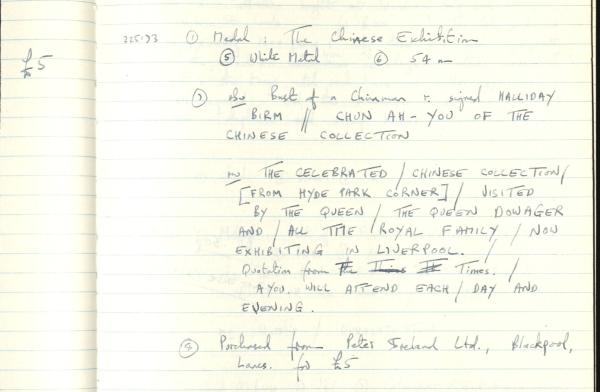 £5
225.93 ① Medal : The Chinese Exhibition
⑤ White Metal ⑥ 54 m
⑦ Obv Bust of a Chinaman r. signed HALLIDAY
BIRM // CHUN AH-YOU OF THE
CHINESE COLLECTION
rev THE CELEBRATED / CHINESE COLLECTION /
[FROM HYDE PARK CORNER] / VISITED
BY THE QUEEN / THE QUEEN DOWAGER
AND / ALL THE / ROYAL FAMILY / NOW
EXHIBITING IN LIVERPOOL. /
Quotation from Times. /
A YOU. WILL ATTEND EACH / DAY AND
EVENING.
⑧ Purchased from Peter Ireland Ltd., Blackpool,
Lancs. for £5